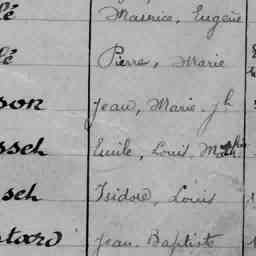 lé Maurice, Eugène
lé Pierre, Marie
son Jean, Marie-Jh
ssch Emile, Louis, Mathieu
sch Isidore, Louis
tard Jean-Baptiste